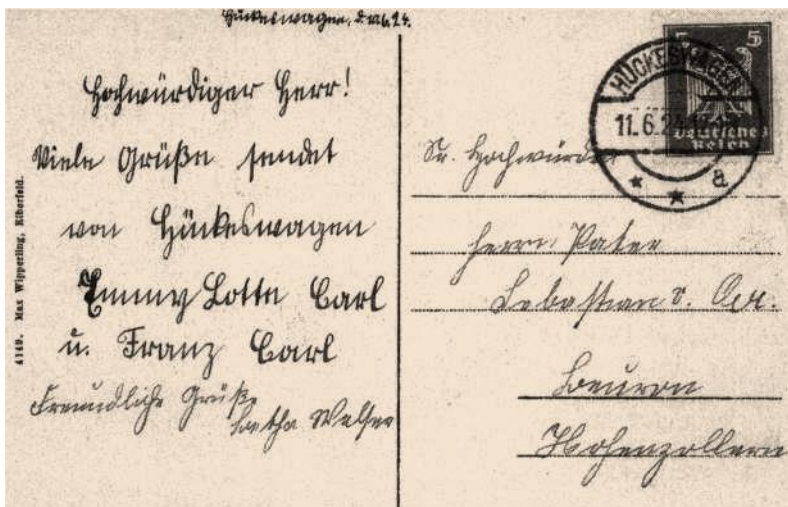 Hückeswagen, d. 10.6.24.
Hochwürdiger Herr!
Viele Grüße sendet
von Hückeswagen
Emmy Lotte Carl
u. Franz Carl
Freundliche Grüße
4149. Max Wipperling, Elberfeld.
5 5
Deutsches
Reich
HÜCKESWAGEN
11.6.24
a
Sr. Hochwürden
Herrn Pater
Sebastian v. Oer.
Beuron
Hohenzollern